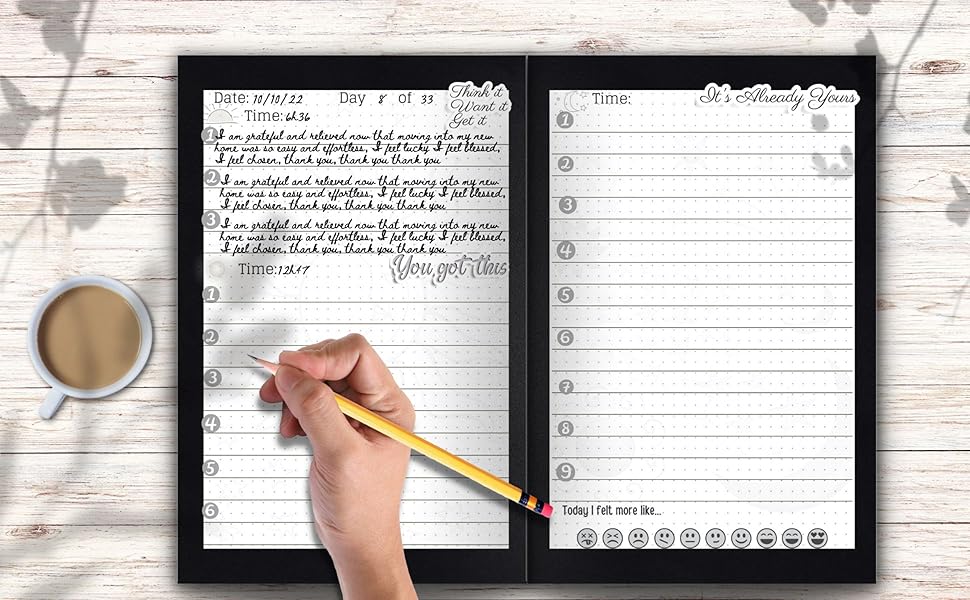 Date: 10/10/22 Day 8 of 33
Think it
Want it
Get it
Time: 6h36
1 I am grateful and relieved now that moving into my new
home was so easy and effortless, I feel lucky I feel blessed,
I feel chosen, thank you, thank you thank you
2 I am grateful and relieved now that moving into my new
home was so easy and effortless, I feel lucky I feel blessed,
I feel chosen, thank you, thank you thank you
3 I am grateful and relieved now that moving into my new
home was so easy and effortless, I feel lucky I feel blessed,
I feel chosen, thank you, thank you thank you
Time: 12h17
You got this
1
2
3
4
5
6
Time:
It's Already Yours
1
2
3
4
5
6
7
8
9
Today I felt more like...